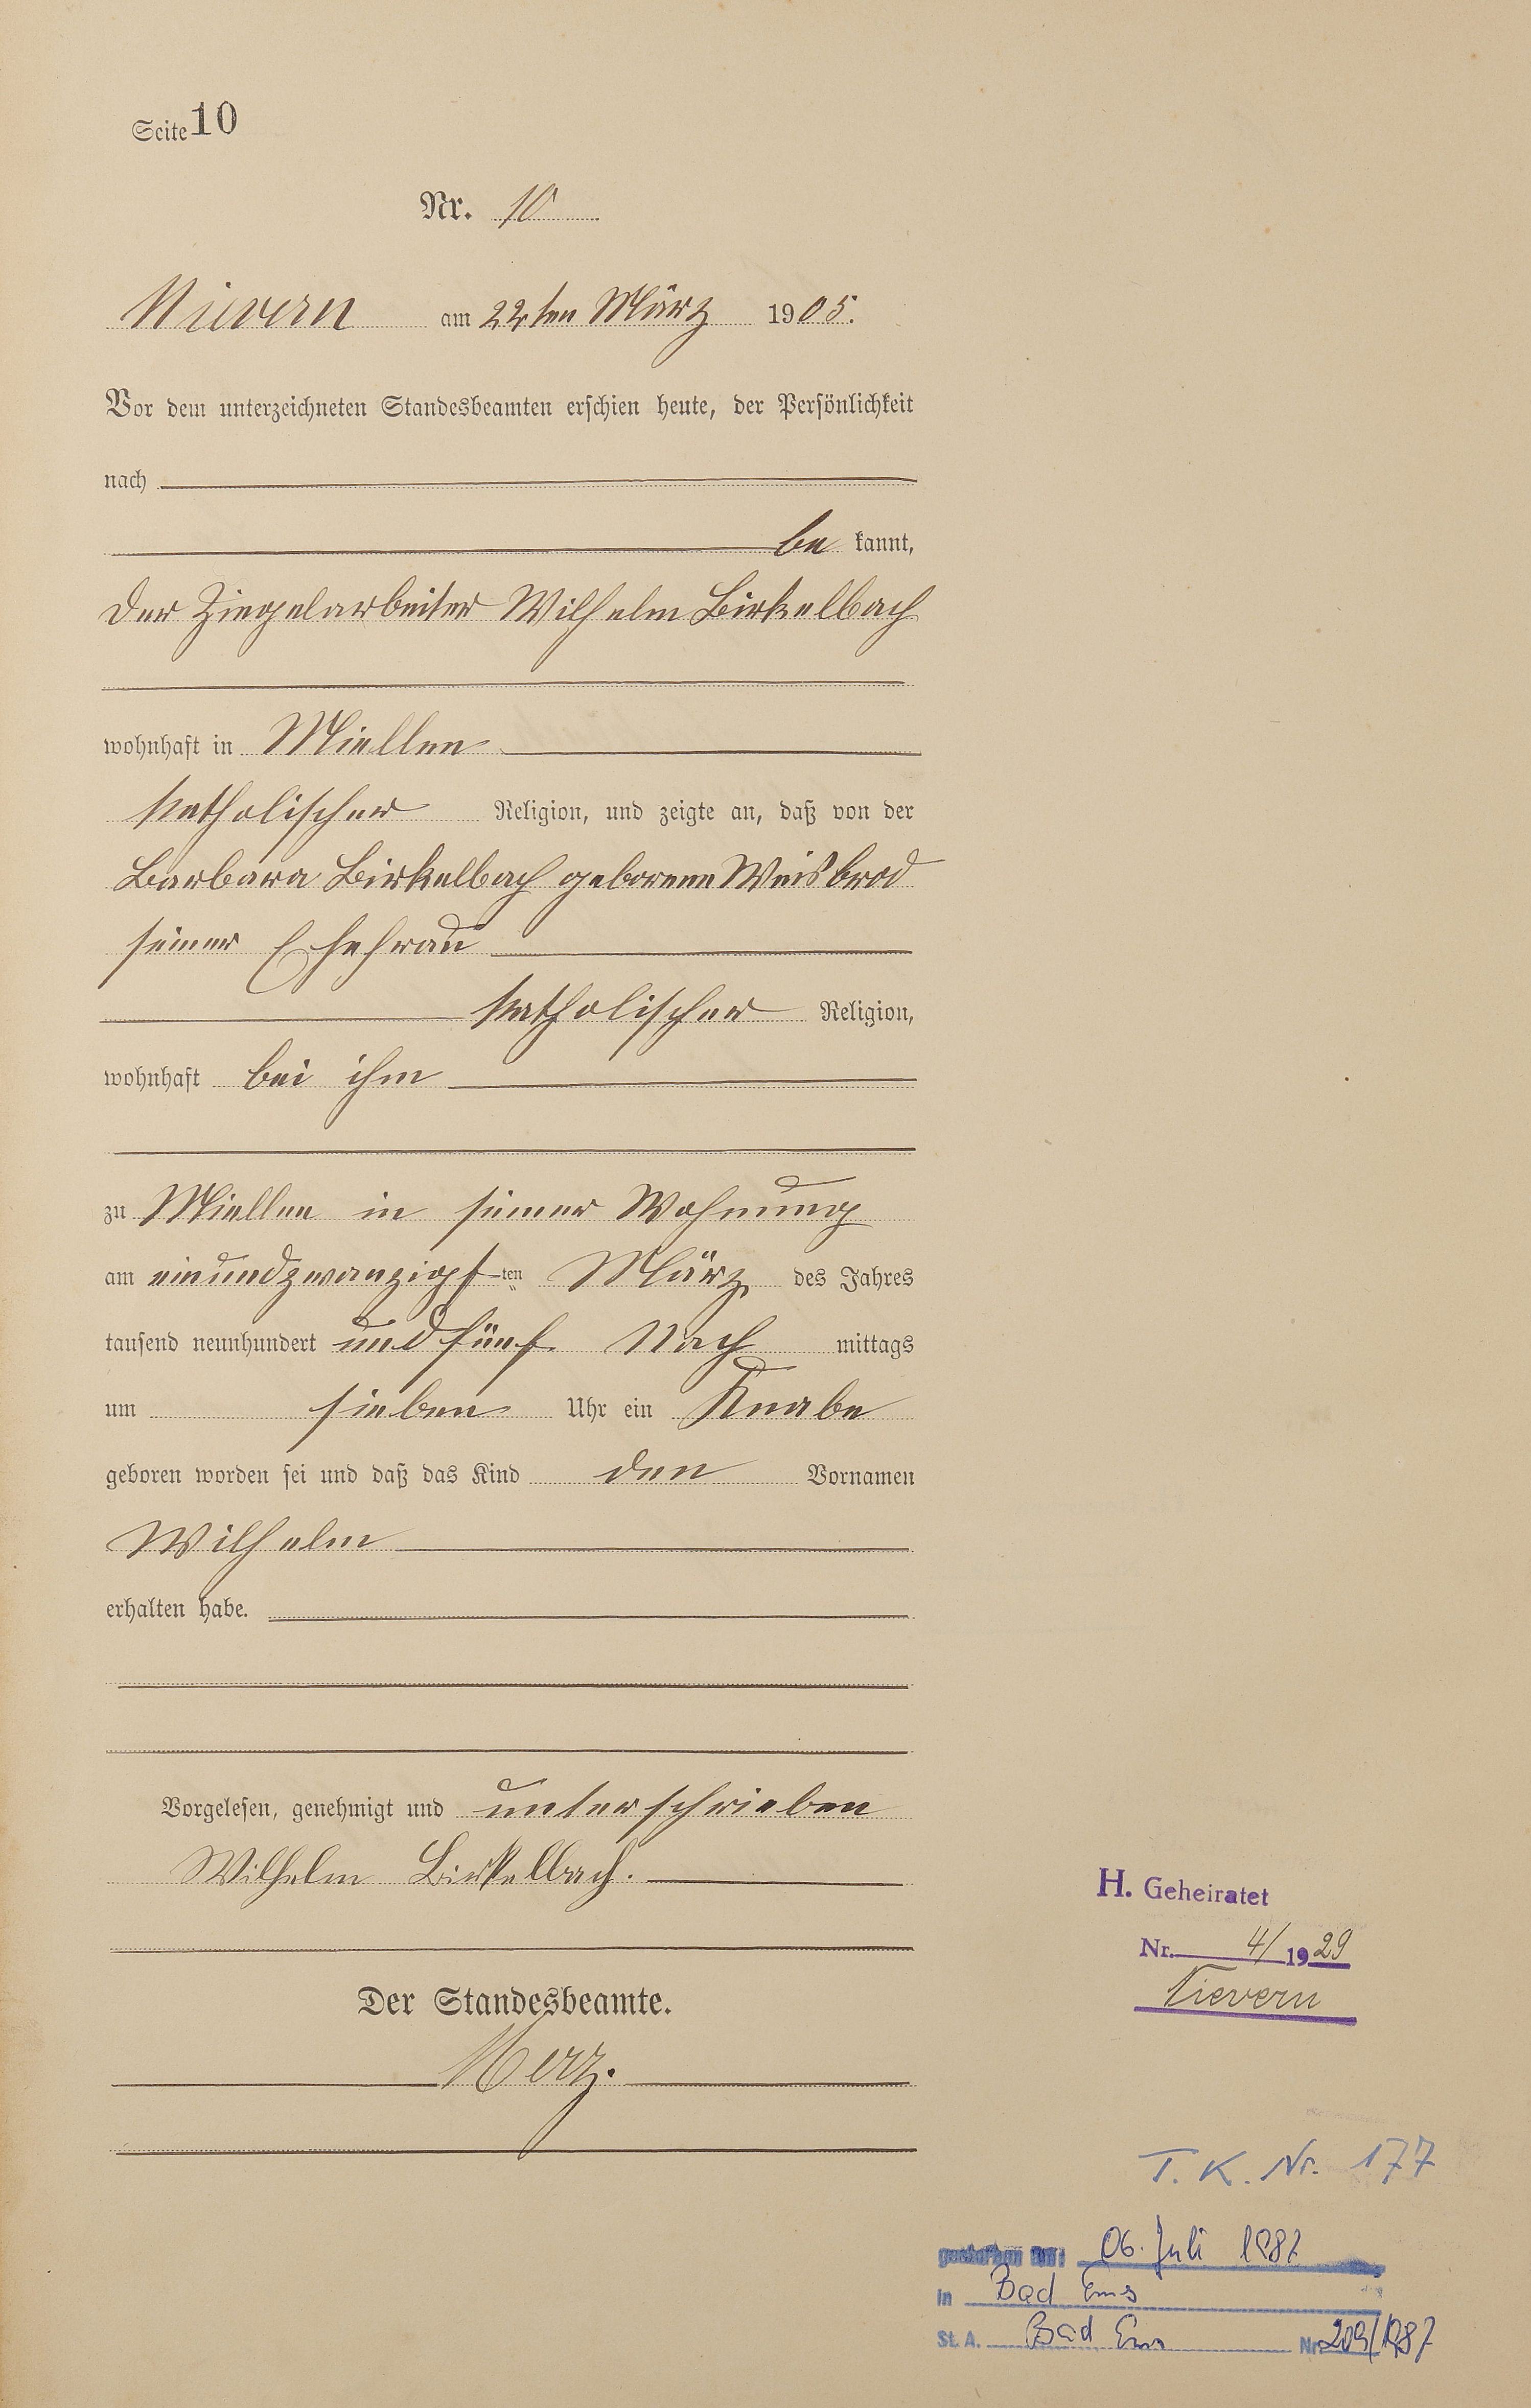 Seite 10
Nr. 10
Nievern am 22ten März 1905.
Vor dem unterzeichneten Standesbeamten erschien heute, der Persönlichkeit
nach
be kannt,
der Ziegelarbeiter Wilhelm Birkelbach
wohnhaft in Miellen
katholischer Religion, und zeigte an, daß von der
Barbara Birkelbach geborene Weisbrod
seiner Ehefrau
katholischer Religion,
wohnhaft bei ihm
zu Miellen in seiner Wohnung
am einundzwanzigsten März des Jahres
tausend neunhundert und fünf Nach mittags
um sieben Uhr ein Knabe
geboren worden sei und daß das Kind den Vornamen
Wilhelm
erhalten habe.
Vorgelesen, genehmigt und unterschrieben
Wilhelm Birkelbach.
Der Standesbeamte.
Merz.
H. Geheiratet
Nr. 4/1929
Nievern
T. K. Nr. 177
gestorben am: 06. Juli 1987
in Bad Ems
St. A. Bad Ems Nr. 209/1987